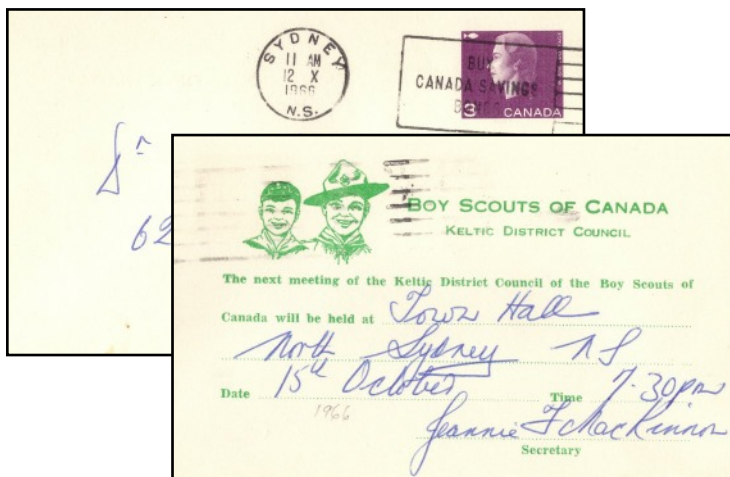 SYDNEY
11 AM
12 X
1966
N.S.
BUY
CANADA SAVINGS
BONDS
3 CANADA
62
BOY SCOUTS OF CANADA
KELTIC DISTRICT COUNCIL
The next meeting of the Keltic District Council of the Boy Scouts of
Canada will be held at Town Hall
North Sydney NS
Date 15th October Time 7.30pm
1966
Jeannie F MacKinnon
Secretary